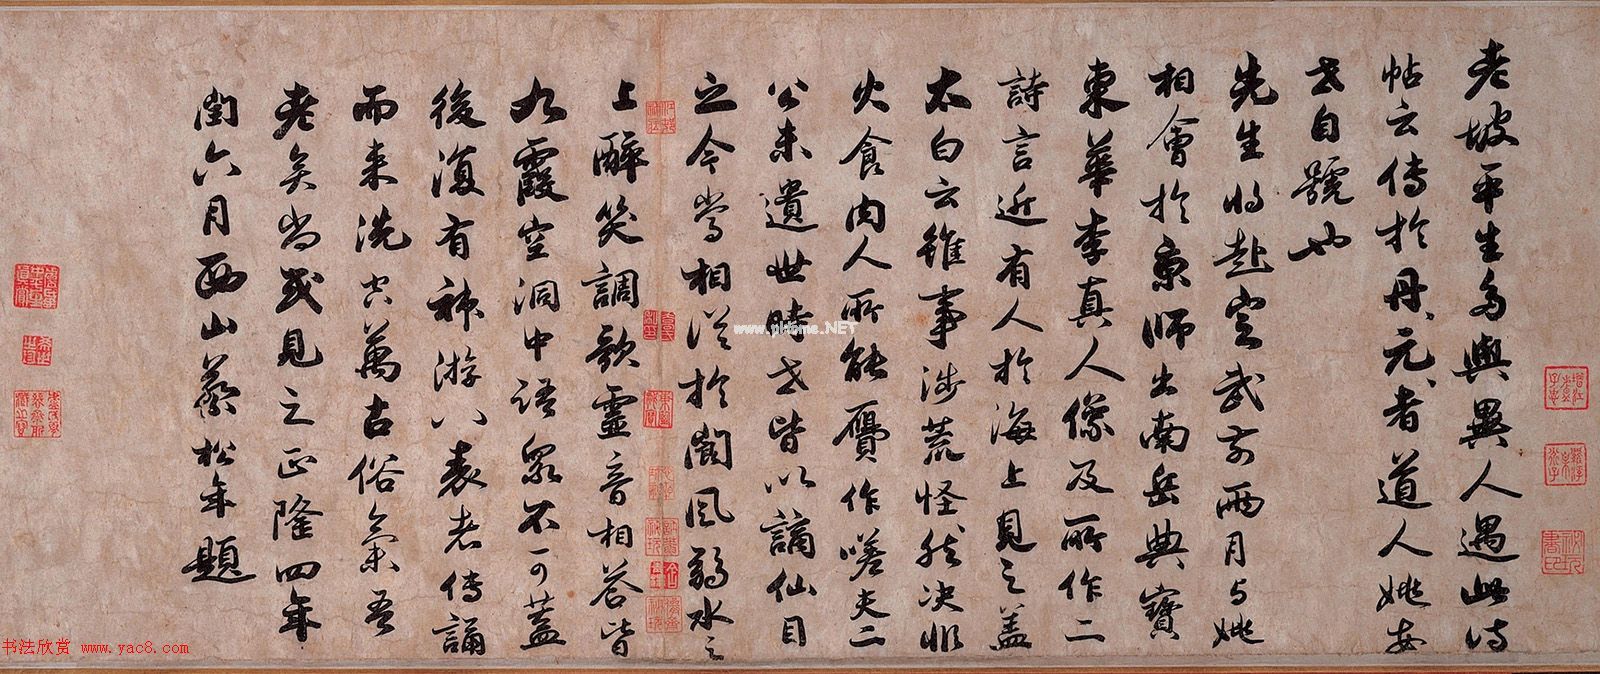 老坡平生多與異人遇此詩
帖云傳於丹丶元丶者道人姚安
世自號也
先生將赴定武前兩月與姚
相會於京師出南岳典寶
東華李真人像及所作二
詩言近有人於海上見之蓋
太白云雖事涉荒怪然決非
火食肉人所能贋作嗟夫二
公未遺世時世皆以謫仙目
之今當相從於閬風弱水之
上醉笑調歌靈音相荅皆
九霞空洞中語衆不可蓋
後復有神游八表者傳誦
而来洗空萬古俗氣吾
老矣尚或見之正隆四年
閏六月西山蔡松年題
www.phome.NET
书法欣赏 www.yac8.com